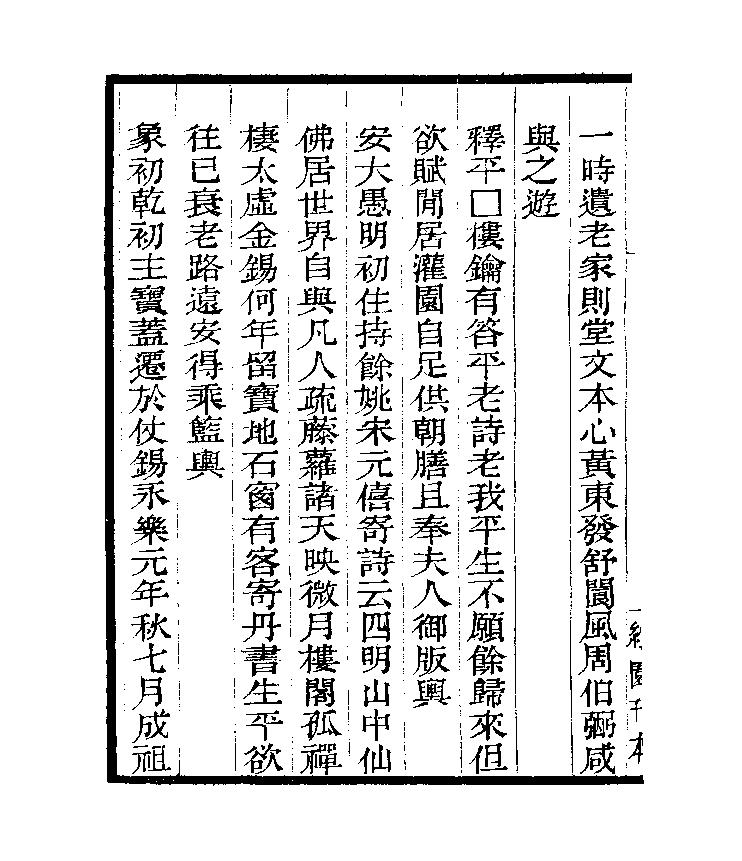 一時遺老家則堂文本心黃東發舒閬風周伯弼咸
與之遊
釋平□樓鑰有答平老詩老我平生不願餘歸來但
欲賦閒居灌園自足供朝膳且奉夫人御版輿
安大愚明初住持餘姚宋元僖寄詩云四明山中仙
佛居世界自與凡人疏藤蘿諸天映微月樓閣孤禪
棲太虛金錫何年留寶地石窗有客寄丹書生平欲
往已衰老路遠安得乘籃輿
象初乾初主寶蓋遷於仗錫永樂元年秋七月成祖